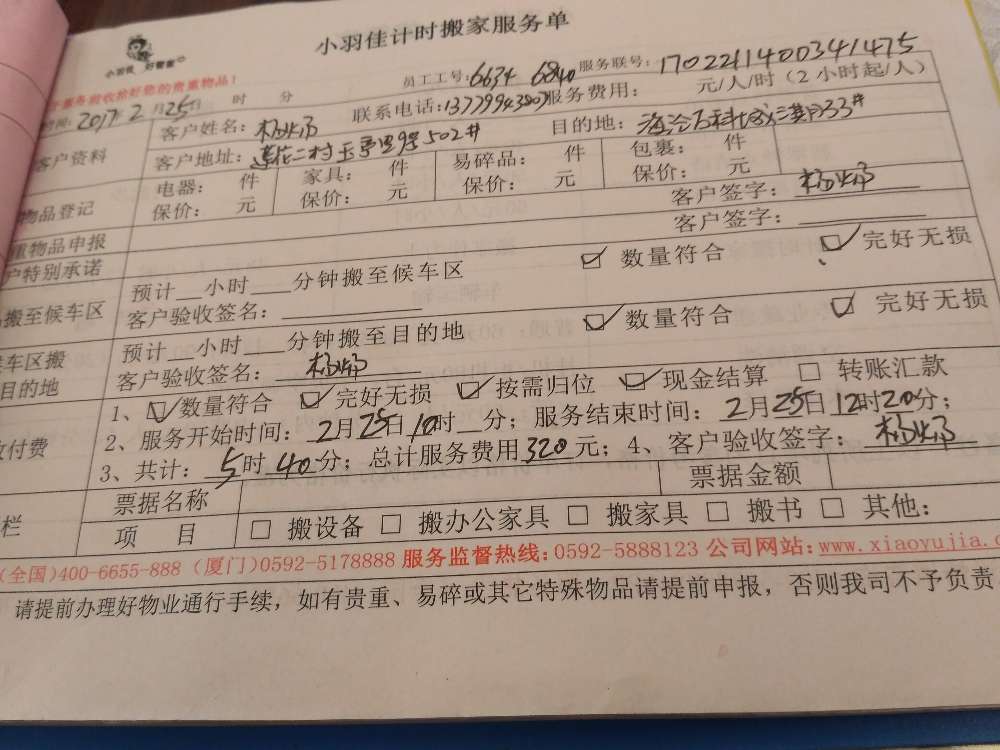 小羽佳计时搬家服务单
小羽佳 好管家
员工工号：6634 6840 服务联号：1702211400341475
服务验收拾好您的贵重物品！
时间：2017年2月25日 时 分 联系电话：13779943807 服务费用： 元/人/时（2小时起/人）
客户资料
客户姓名：
客户地址：莲花二村 502# 目的地：
物品登记
电器： 件 家具： 件 易碎品： 件 包裹： 件
保价： 元 保价： 元 保价： 元 保价： 元
重物品申报 客户签字：
户特别承诺 客户签字：
搬至候车区
预计 小时 分钟搬至候车区 ☑ 数量符合 ☑ 完好无损
客户验收签名：
候车区搬
目的地
预计 小时 分钟搬至目的地 ☑ 数量符合 ☑ 完好无损
客户验收签名：
收付费
1、☑ 数量符合 ☑ 完好无损 ☑ 按需归位 ☑ 现金结算 □ 转账汇款
2、服务开始时间：2月25日10时 分；服务结束时间：2月25日12时20分；
3、共计：5时40分；总计服务费用320元；4、客户验收签字：
栏
票据名称 票据金额
项 目 □ 搬设备 □ 搬办公家具 □ 搬家具 □ 搬书 □ 其他：
(全国)400-6655-888 (厦门)0592-5178888 服务监督热线：0592-5888123 公司网站：www.xiaoyujia.c
请提前办理好物业通行手续，如有贵重、易碎或其它特殊物品请提前申报，否则我司不予负责